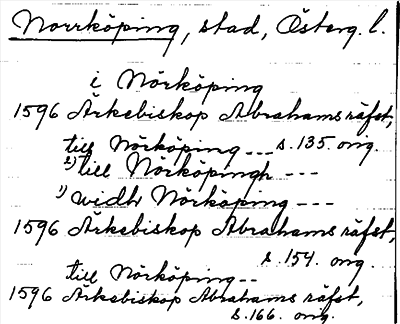 Norrköping, stad, Österg. l.
i Nörköping
1596 Ärkebiskop Abrahams räfst,
till Nörköping --- s. 135. orig.
2) till Nörköpingh ---
1) widh Nörköping ---
1596 Ärkebiskop Abrahams räfst,
s. 154. orig.
till Nörköping --
1596 Ärkebiskop Abrahams räfst,
s. 166. orig.